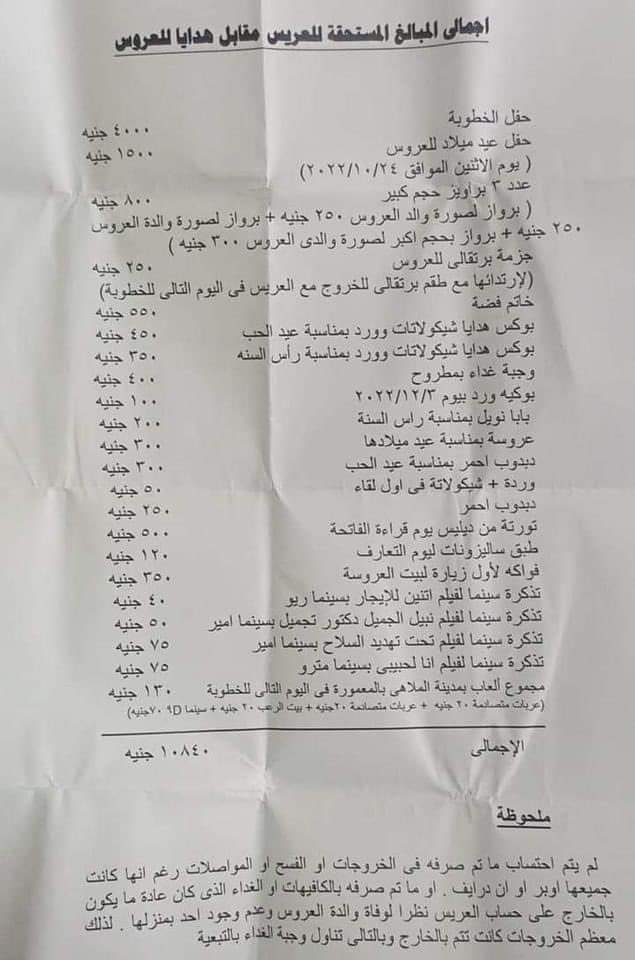 اجمالى المبالغ المستحقة للعريس مقابل هدايا للعروس
حفل الخطوبة ٤٠٠٠ جنيه
حفل عيد ميلاد للعروس ١٥٠٠ جنيه
( يوم الاثنين الموافق ٢٠٢٢/١٠/٢٤)
عدد ٣ براويز حجم كبير ٨٠٠ جنيه
( برواز لصورة والد العروس ٢٥٠ جنيه + برواز لصورة والدة العروس
٢٥٠ جنيه + برواز بحجم اكبر لصورة والدى العروس ٣٠٠ جنيه )
جزمة برتقالى للعروس ٢٥٠ جنيه
(لإرتدائها مع طقم برتقالى للخروج مع العريس فى اليوم التالى للخطوبة)
خاتم فضة ٥٥٠ جنيه
بوكس هدايا شيكولاتات وورد بمناسبة عيد الحب ٤٥٠ جنيه
بوكس هدايا شيكولاتات وورد بمناسبة رأس السنه ٣٥٠ جنيه
وجبة غداء بمطروح ٤٠٠ جنيه
بوكيه ورد بيوم ٢٠٢٢/١٢/٣ ١٠٠ جنيه
بابا نويل بمناسبة راس السنة ٢٠٠ جنيه
عروسة بمناسبة عيد ميلادها ٣٠٠ جنيه
دبدوب احمر بمناسبة عيد الحب ٣٠٠ جنيه
وردة + شيكولاتة فى اول لقاء ٥٠ جنيه
دبدوب احمر ٢٥٠ جنيه
تورتة من ديليس يوم قراءة الفاتحة ٥٠٠ جنيه
طبق ساليزونات ليوم التعارف ١٢٠ جنيه
فواكه لأول زيارة لبيت العروسة ٣٥٠ جنيه
تذكرة سينما لفيلم اتنين للإيجار بسينما ريو ٤٠ جنيه
تذكرة سينما لفيلم نبيل الجميل دكتور تجميل بسينما امير ٥٠ جنيه
تذكرة سينما لفيلم تحت تهديد السلاح بسينما امير ٧٥ جنيه
تذكرة سينما لفيلم انا لحبيبى بسينما مترو ٧٥ جنيه
مجموع ألعاب بمدينة الملاهى بالمعمورة فى اليوم التالى للخطوبة ١٣٠ جنيه
(عربات متصادمة ٢٠ جنيه + عربات متصادمة ٢٠جنيه + بيت الرعب ٢٠ جنيه + سينما ٩D ٧٠جنيه)
الإجمالى ١٠٨٤٠ جنيه
ملحوظة
لم يتم احتساب ما تم صرفه فى الخروجات او الفسح او المواصلات رغم انها كانت
جميعها اوبر او ان درايف . او ما تم صرفه بالكافيهات او الغداء الذى كان عادة ما يكون
بالخارج على حساب العريس نظرا لوفاة والدة العروس وعدم وجود احد بمنزلها . لذلك
معظم الخروجات كانت تتم بالخارج وبالتالى تناول وجبة الغداء بالتبعية